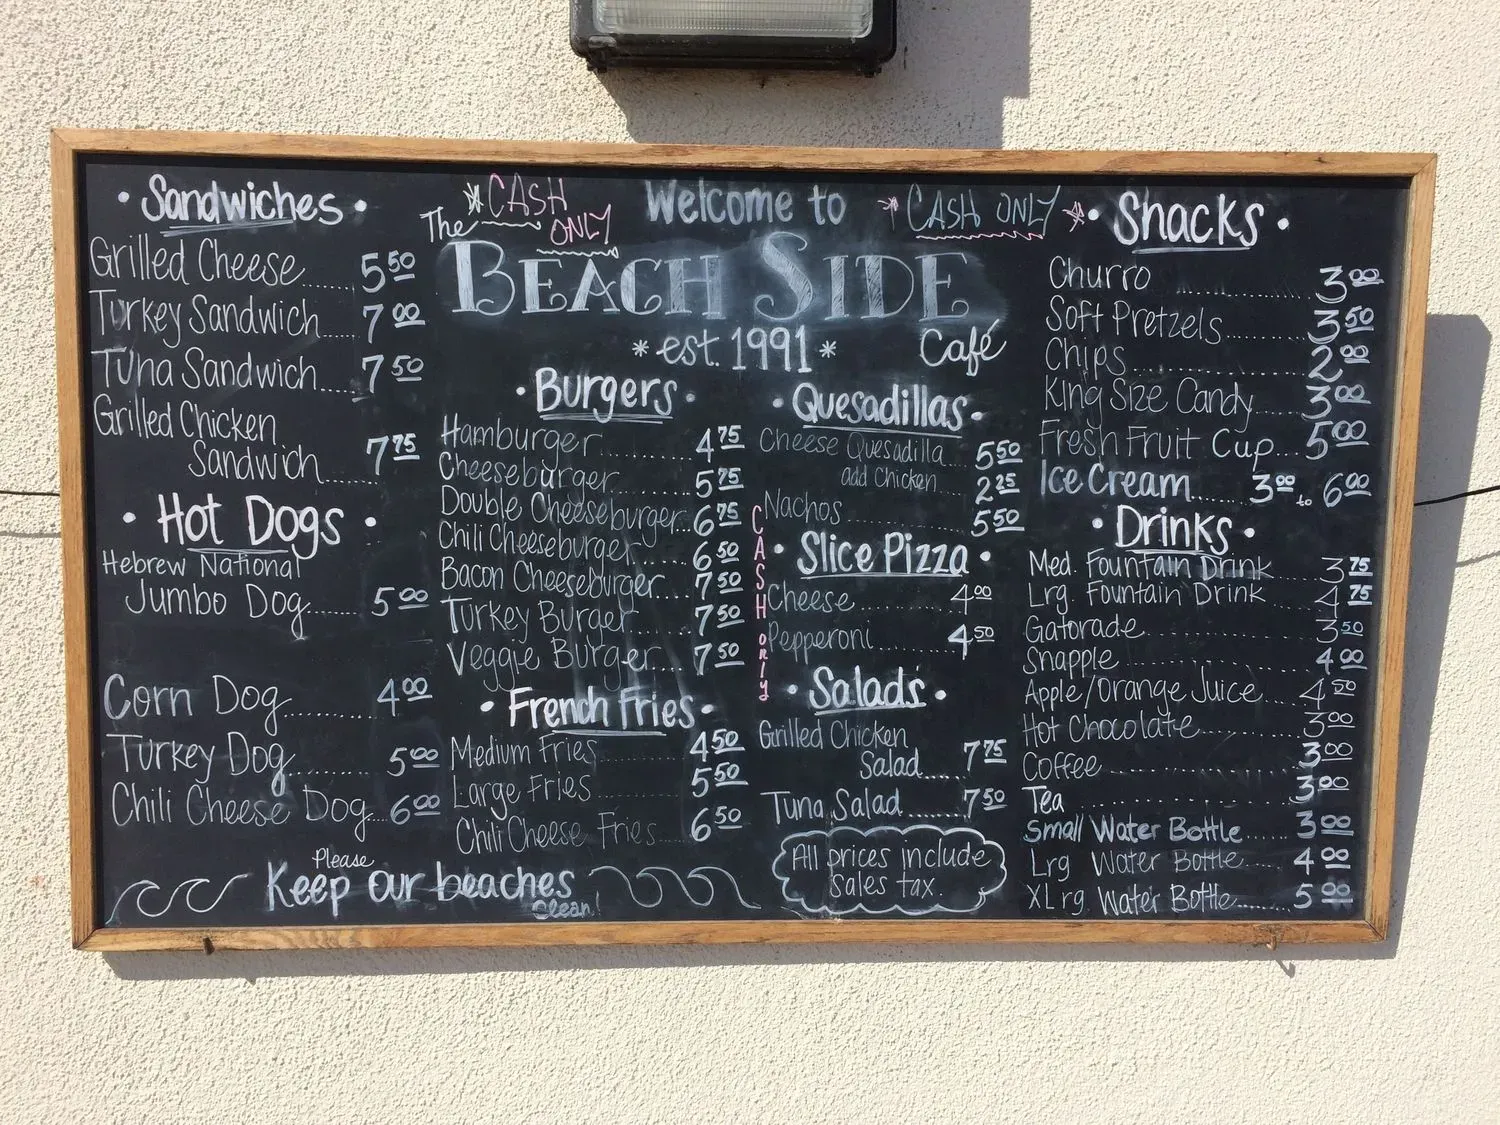 • Sandwiches •
Grilled Cheese...... 5 50
Turkey Sandwich.... 7 00
Tuna Sandwich... 7 50
Grilled Chicken
Sandwich...... 7 75
• Hot Dogs •
Hebrew National
Jumbo Dog...... 5 00
Corn Dog........... 4 00
Turkey Dog......... 5 00
Chili Cheese Dog... 6 00
* CASH
ONLY
Welcome to
* CASH ONLY *
The
BEACH SIDE
Café
* est. 1991 *
• Burgers •
Hamburger.......... 4 75
Cheeseburger........ 5 75
Double Cheeseburger.. 6 75
Chili Cheeseburger...... 6 50
Bacon Cheeseburger... 7 50
Turkey Burger..... 7 50
Veggie Burger.... 7 50
• French Fries •
Medium Fries........... 4 50
Large Fries........... 5 50
Chili Cheese Fries..... 6 50
• Quesadillas •
Cheese Quesadilla... 5 50
add Chicken...... 2 25
Nachos............ 5 50
CASH only
• Slice Pizza •
Cheese........... 4 00
Pepperoni......... 4 50
• Salads •
Grilled Chicken
Salad..... 7 75
Tuna Salad........ 7 50
All prices include
sales tax.
• Snacks •
Churro............... 3 00
Soft Pretzels.......... 3 50
Chips.................. 2 00
King Size Candy...... 3 00
Fresh Fruit Cup.... 5 00
Ice Cream...... 3 00 to 6 00
• Drinks •
Med. Fountain Drink...... 3 75
Lrg. Fountain Drink...... 4 75
Gatorade................. 3 50
Snapple.................. 4 00
Apple/Orange Juice.... 4 50
Hot Chocolate........... 3 00
Coffee.................... 3 00
Tea........................ 3 00
Small Water Bottle...... 3 00
Lrg Water Bottle..... 4 00
XLrg Water Bottle....... 5 00
Please
Keep our beaches
Clean!